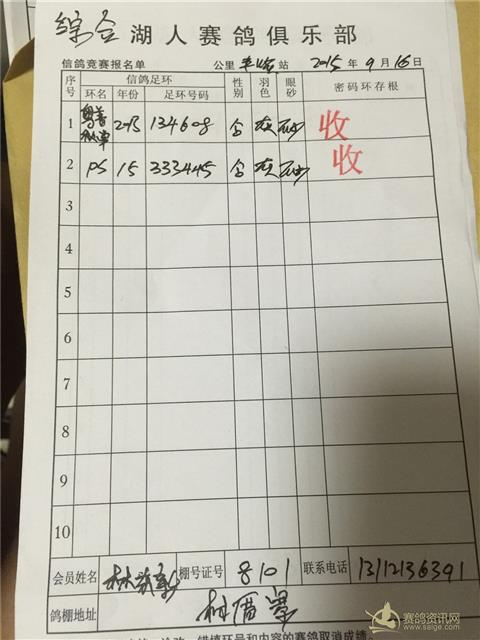 综合 湖人赛鸽俱乐部
信鸽竞赛报名单 公里 站 2015年9月16日
序号 信鸽足环 性别 羽色 眼砂 密码环存根
环名 年份 足环号码
1 2015 134608 灰 砂 收
2 PS 15 333445 灰 砂 收
3
4
5
6
7
8
9
10
会员姓名 林 棚号证号 8101 联系电话 13112136391
鸽棚地址
错填环号和内容的赛鸽取消成绩
赛鸽资讯网
www.saige.com